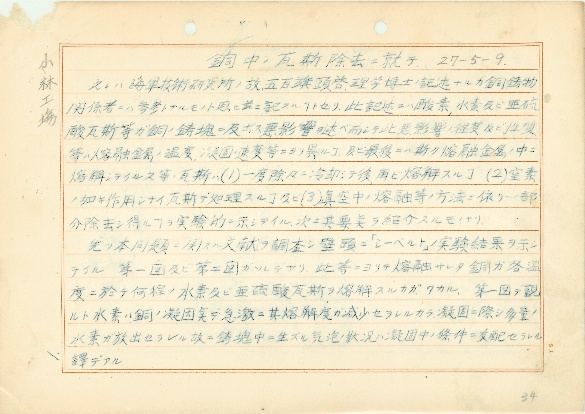 小林工場
銅中ノ瓦斯除去ニ就テ 27-5-9.
之レハ海軍技術研究所ノ故五百旗頭啓理学博士ノ記述ナルガ銅鋳物
関係者ニハ参考ナルモノト思ヒ共ニ記スル了トセリ、此記述ニハ酸素、水素及ビ亜硫
酸瓦斯等ガ銅ノ鋳塊ニ及ボス悪影響ヲ述ベ而シテ此悪影響ノ程度及ビ性質
等ハ熔融金属ノ温度、凝固ノ速度等ニヨリ異ル了、及ビ最後ニハ斯ク熔融金属ノ中ニ
熔解シテイル之等ノ瓦斯ハ(1)一度除々ニ冷却シテ後再ビ熔解スル了 (2)窒素
ノ如キ作用シナイ瓦斯デ処理スル了及ビ(3)真空中ノ熔融等ノ方法ニ依リ一部
分除去シ得ル了ヲ実験的ニ示シテイル、次ニ其要点ヲ紹介スルモノナリ
先ヅ本問題ニ関スル文献ヲ調査シ劈頭ニ「シーベルト」ノ実験結果ヲ示シ
テイル 第一図及ビ第二図ガソレナリ、此等ニヨリテ熔融サレタ銅ガ各温
度ニ於テ何程ノ水素及ビ亜硫酸瓦斯ヲ熔解スルカガワカル、第一図ヲ観
ルト水素ハ銅ノ凝固点デ急激ニ其熔解度ガ減少セラレルカラ凝固ニ際シ多量ノ
水素ガ放出セラレル故ニ鋳塊中ニ生ズル気泡ノ状況ハ凝固中ノ條件ニ支配セラレル
譯デアル
34